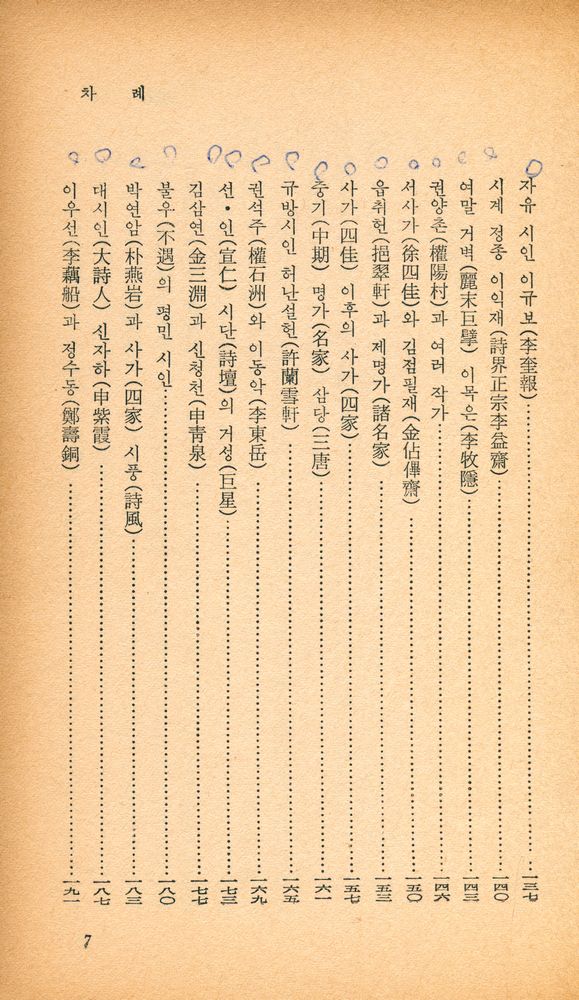 차 례
자유 시인 이규보(李奎報)……一三七
시계 정종 이익재(詩界正宗李益齋)……一四〇
여말 거벽(麗末巨擘) 이목은(李牧隱)……一四三
권양촌(權陽村)과 여러 작가……一四六
서사가(徐四佳)와 김점필재(金佔俾齋)……一五〇
읍취헌(挹翠軒)과 제명가(諸名家)……一五三
사가(四佳) 이후의 사가(四家)……一五七
중기(中期) 명가(名家) 삼당(三唐)……一六一
규방시인 허난설헌(許蘭雪軒)……一六五
권석주(權石洲)와 이동악(李東岳)……一六九
선・인(宣仁) 시단(詩壇)의 거성(巨星)……一七三
김삼연(金三淵)과 신청천(申靑泉)……一七七
불우(不遇)의 평민 시인……一八〇
박연암(朴燕岩)과 사가(四家) 시풍(詩風)……一八三
대시인(大詩人) 신자하(申紫霞)……一八七
이우선(李藕船)과 정수동(鄭壽銅)……一九一
7